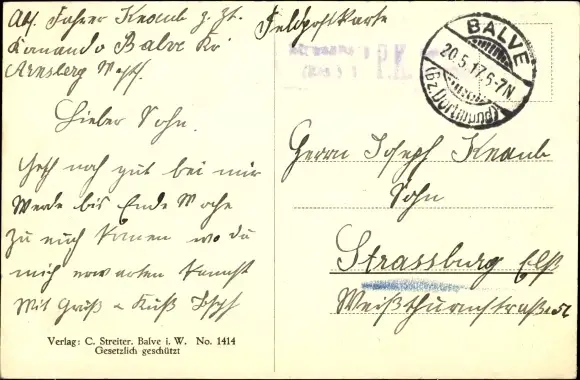 Abs. Fahrer Knaub z. Zt.
Komando Balve Kr
Arnsberg Westf.
Feldpostkarte
BALVE
20.5.17.6-7N
(Bz. Dortmund)
Lieber Sohn.
Geht noch gut bei mir
Werde bis Ende Woche
zu euch komen wo du
mich erwarten kannst
Mit Gruß & Kuß
Herrn Joseph Knaub
Sohn
Strassburg Elß
Weißthurmstraße
Verlag: C. Streiter. Balve i. W. No. 1414
Gesetzlich geschützt